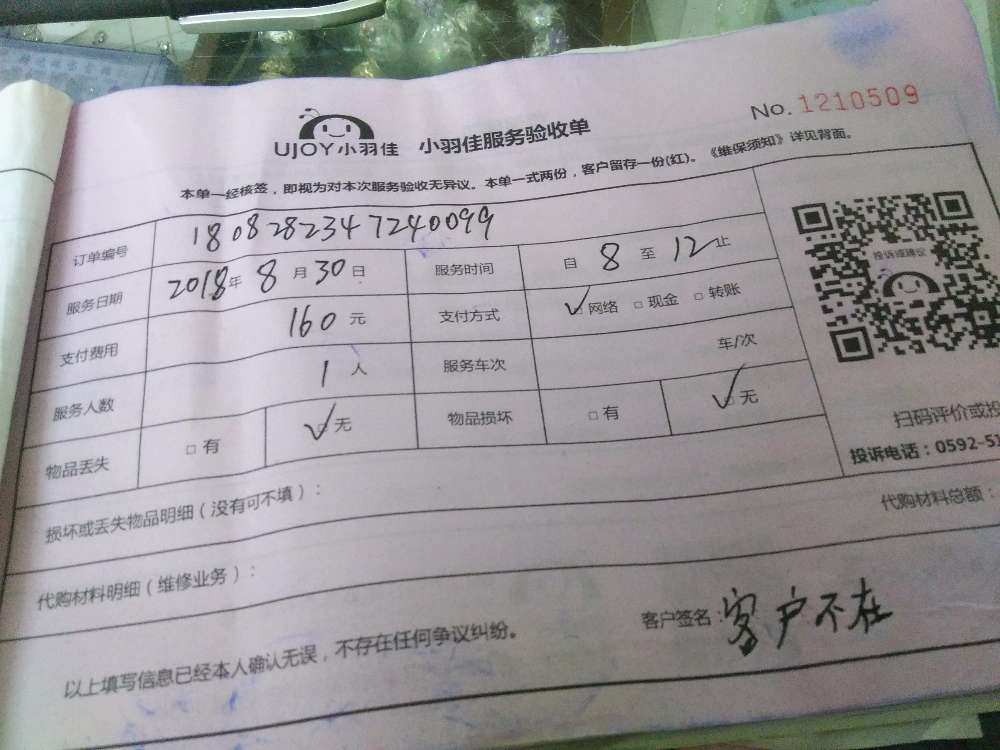 No. 1210509
UJOY小羽佳 小羽佳服务验收单
本单一经核签，即视为对本次服务验收无异议。本单一式两份，客户留存一份(红)。《维保须知》详见背面。
订单编号 1808282347240099
服务日期 2018年8月30日 服务时间 自 8 至 12 止
支付费用 160 元 支付方式 ☑网络 □现金 □转账
服务人数 1 人 服务车次 车/次
物品丢失 □有 ☑无 物品损坏 □有 ☑无
投诉或建议
扫码评价或投
投诉电话：0592-51
损坏或丢失物品明细（没有可不填）：
代购材料明细（维修业务）： 代购材料总额：
以上填写信息已经本人确认无误，不存在任何争议纠纷。 客户签名：客户不在